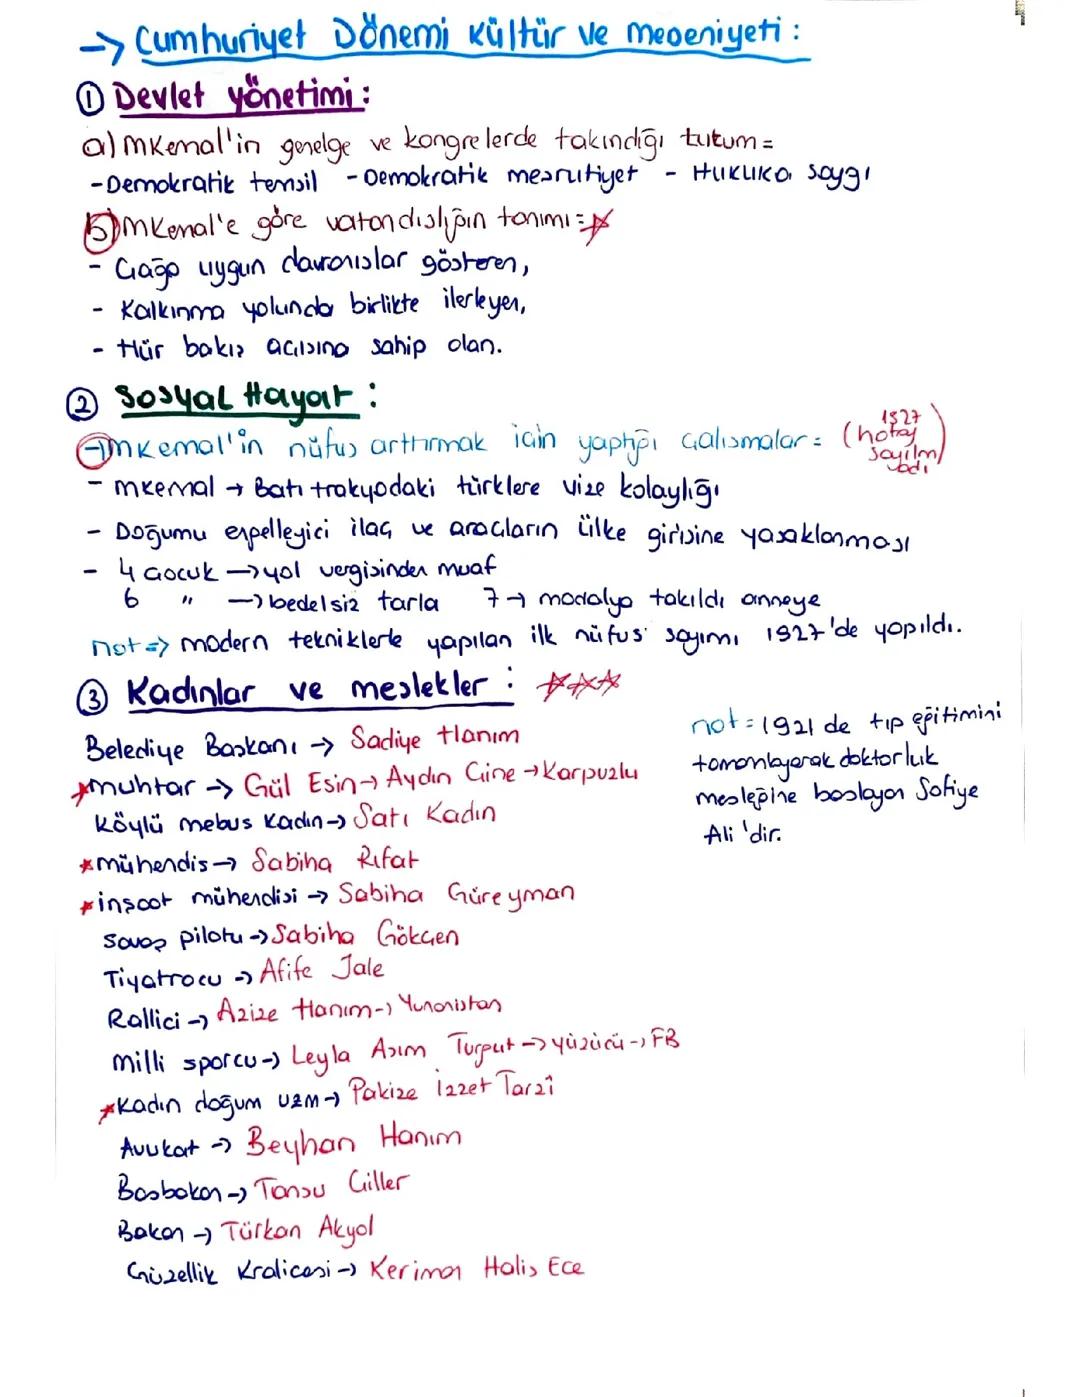 → Cumhuriyet Dönemi Kültür ve medeniyeti :
① Devlet yönetimi :
a) MKemal'in genelge ve kongrelerde takındığı tutum =
- Demokratik temsil - Demokratik meşrutiyet - Hukuka saygı
b) MKemal'e göre vatandaşlığın tanımı =
- Çağa uygun davranışlar gösteren,
- Kalkınma yolunda birlikte ilerleyen,
- Hür bakış açısına sahip olan.
② Sosyal Hayat :
→ mkemal'in nüfus arttırmak için yaptığı çalışmalar = (1927 hatay sayılmadı)
- mkemal → Batı trakyadaki türklere vize kolaylığı
- Doğumu engelleyici ilaç ve araçların ülke girişine yasaklanması
- 4 çocuk → yol vergisinden muaf
6 " → bedelsiz tarla 7 → madalya takıldı anneye
not => modern tekniklerle yapılan ilk nüfus sayımı 1927'de yapıldı.
③ Kadınlar ve meslekler :
Belediye Başkanı → Sadiye Hanım
muhtar → Gül Esin → Aydın Çine → Karpuzlu
Köylü mebus Kadın → Satı Kadın
mühendis → Sabiha Rıfat
inşaat mühendisi → Sabiha Güreyman
Savaş pilotu → Sabiha Gökçen
Tiyatrocu → Afife Jale
Rallici → Azize Hanım → Yunanistan
milli sporcu → Leyla Asım Turgut → yüzücü → FB
Kadın doğum uzm → Pakize İzzet Tarzî
Avukat → Beyhan Hanım
Başbakan → Tansu Çiller
Bakan → Türkan Akyol
Güzellik Kraliçesi → Keriman Halis Ece
not = 1921 de tıp eğitimini
tamamlayarak doktorluk
mesleğine başlayan Safiye
Ali 'dir.